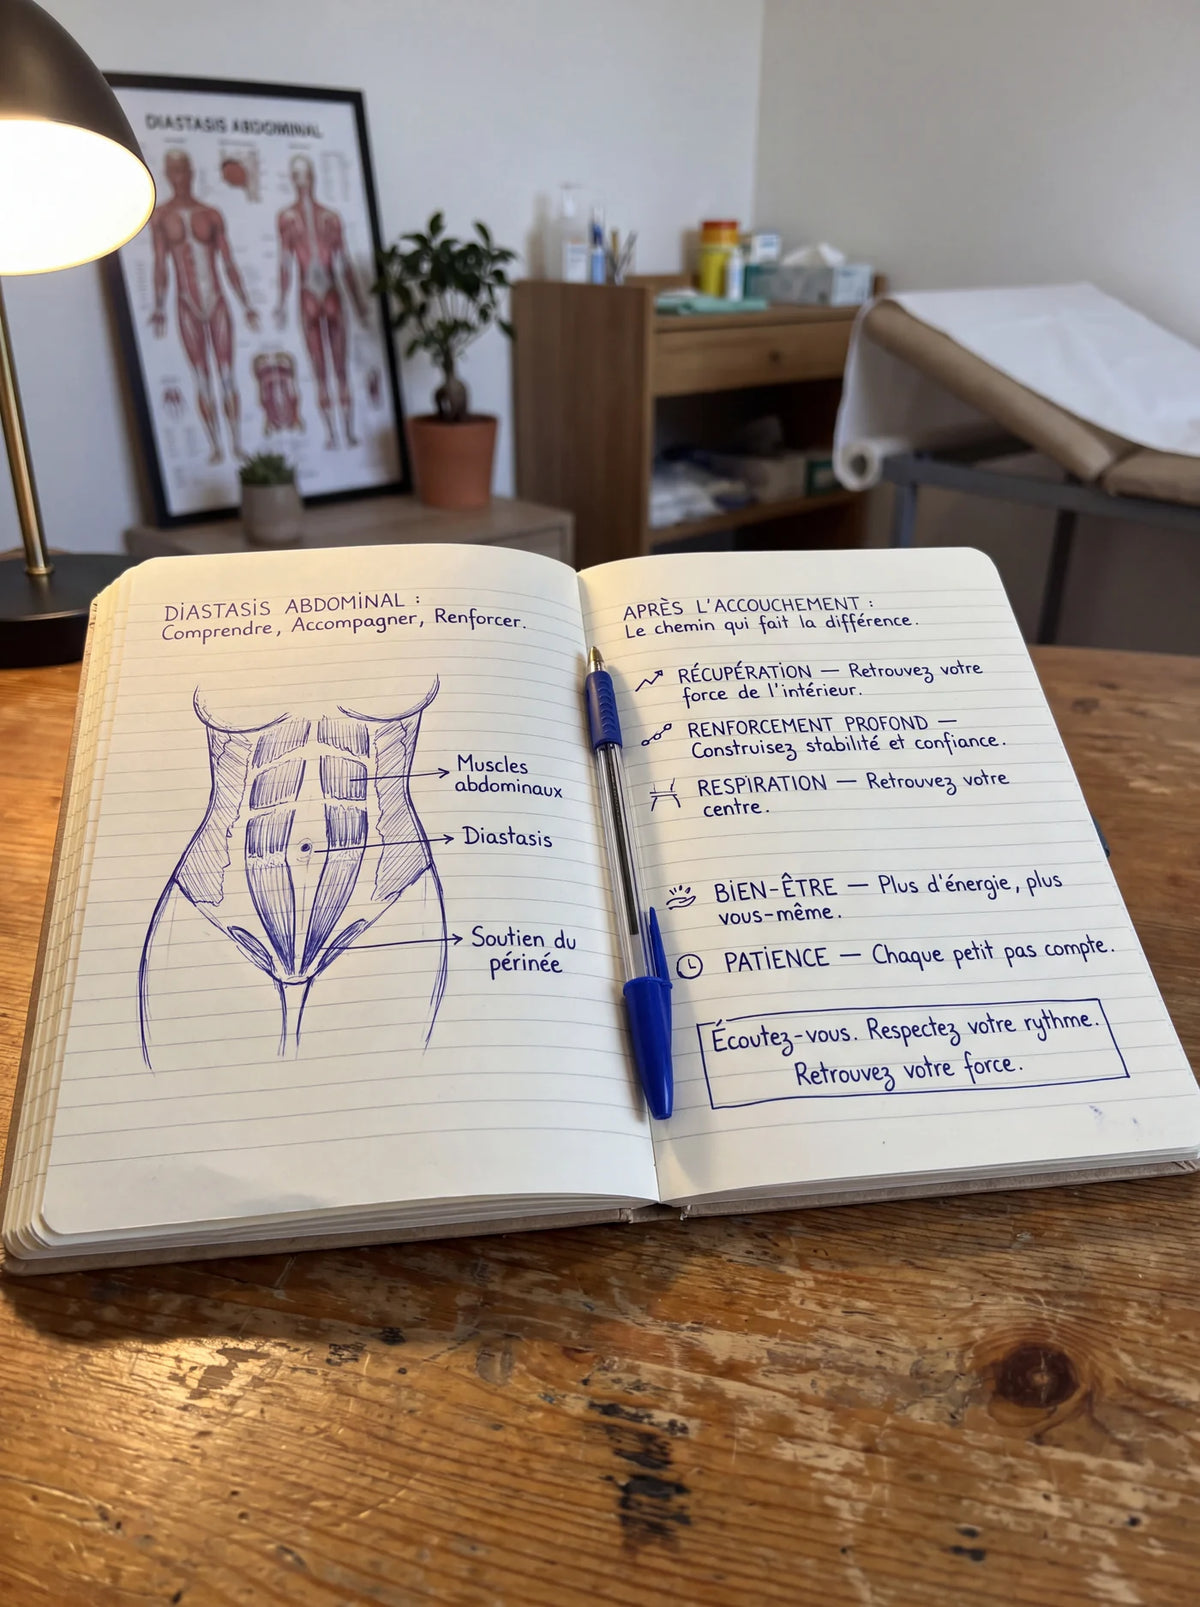 DIASTASIS ABDOMINAL
DIASTASIS ABDOMINAL :
Comprendre, Accompagner, Renforcer.
Muscles
abdominaux
Diastasis
Soutien du
périnée
APRÈS L'ACCOUCHEMENT :
Le chemin qui fait la différence.
RÉCUPÉRATION — Retrouvez votre
force de l'intérieur.
RENFORCEMENT PROFOND —
Construisez stabilité et confiance.
RESPIRATION — Retrouvez votre
centre.
BIEN-ÊTRE — Plus d'énergie, plus
vous-même.
PATIENCE — Chaque petit pas compte.
Écoutez-vous. Respectez votre rythme.
Retrouvez votre force.